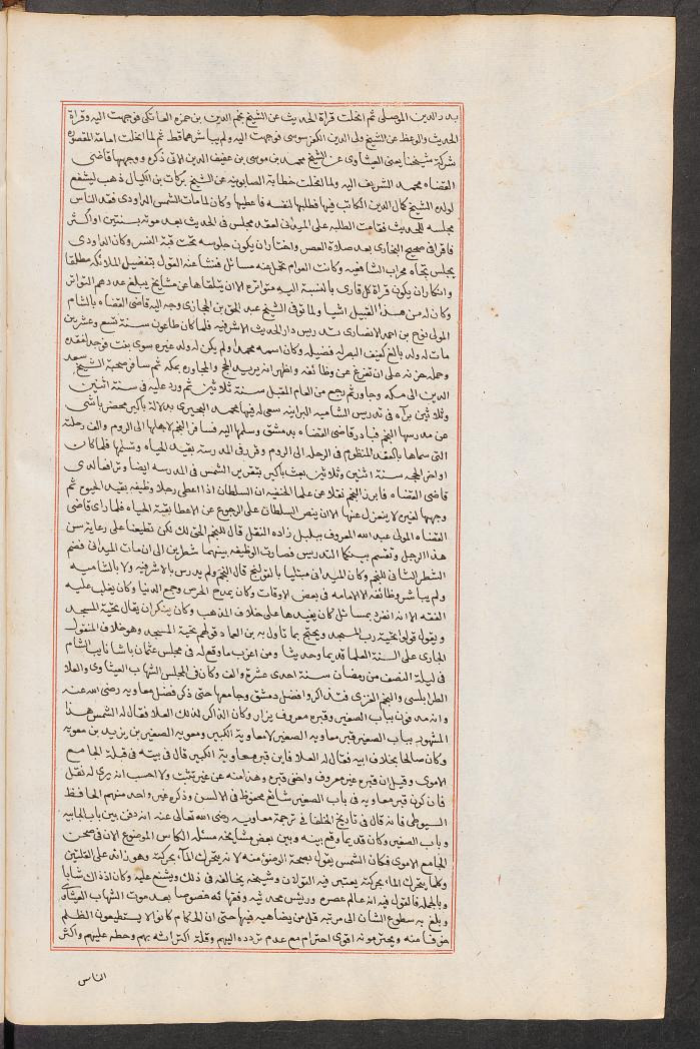 بدر الدين الموصلي ثم انحلت قراة الحديث عن الشيخ نجم الدين بن حمزه العاتكي فوجهت اليه وقراة
الحديث والوعظ عن الشيخ ولي الدين الكفرسوسي فوجهت اليه ولم يباشرهما قط ثم لما انحلت امامة المقصوره
شركة شيخنا يعني العيثاوي عن الشيخ محمد بن موسى بن عفيف الدين الاتي ذكره ووجهها قاضي
القضاه محمد الشريف اليه ولما انحلت خطابة الصابونيه عن الشيخ بركات بن الكيال ذهب ليشفع
لولده الشيخ كمال الدين الكاتب فيها فطلبها لنفسه فاعطيها وكان لما مات الشمس الداودي فقد الناس
مجلسه للحديث فقامت الطلبه على الميداني لعقد مجلس في الحديث بعد موته بسنتين او اكثر
فاقرا في صحيح البخاري بعد صلاة العصر واختار ان يكون جلوسه تحت قبة النسر وكان الداودي
يجلس تجاه محراب الشافعيه وكانت العوام تنقل عنه مسائل فنشا عنه القول بتفضيل الملائكه مطلقا
وانكار ان يكون قراة كل قاري بالنسبة اليه متواتره الا ان يتلقاها عن مشايخ يبلغ عددهم التواتر
وكان له من هذا القبيل اشيا ولما توفي الشيخ عبد الحق بن الحجازي وجه اليه قاضي القضاء بالشام
المولى نوح بن احمد الانصاري تدريس دار الحديث الاشرفيه فلما كان طاعون سنة تسع وعشرين
مات له ولد بالغ كفيف البصر له فضيله وكان اسمه محمدا ولم يكن له ولد غيره سوى بنت فوجد لفقده
وحمله حزنه على ان تفرغ عن وظائفه واظهر انه يريد الحج والمجاوره بمكه ثم سافر صحبة الشيخ سعد
الدين الى مكه وجاور ثم رجع من العام المقبل سنة ثلاثين ثم ورد عليه في سنة اثنين
وثلاثين براه في تدريس الشاميه البرانيه سعى له فيها محمد البحيري بدلالة باكير محضر باشي
عن مدرسها النجم فبادر قاضي القضاء بدمشق وسلمها اليه فسافر النجم لاجلها الى الروم والف رحلته
التي سماها بالعقد المنظوم في الرحله الى الروم وقرر في المدرسه بقيد الحياه وتسلمها فلما كان
اوائل الحجه سنة اثنين وثلاثين بعث باكير بتقرير الشمس في المدرسه ايضا وترافعا لدى
قاضي القضاه فابرز النجم نقلا عن علما الحنفيه ان السلطان اذا اعطى رجلا وظيفه بقيد الحيوه ثم
وجهها لغيره لا ينعزل عنها الا ان ينص السلطان على الرجوع عن الاعطا بقيد الحياه فلما راى قاضي
القضاه المولى عبد الله المعروف ببلبل زاده النقل قال للنجم الحق لك لكن تطيعنا على رعاية سن
هذا الرجل وتقسم بينكما التدريس فصارت الوظيفه بينهما شطرين الى ان مات الميداني فضم
الشطر الثاني للنجم وكان الميداني مبتليا بالقولنج قال النجم ولم يدرس بالاشرفيه ولا بالشاميه
ولم يباشر وظائفه الا الامامه في بعض الاوقات وكان يمدح الحرص وجمع الدنيا وكان يغلب عليه
الفقه الا انه انفرد بمسائل كان يفيدها على خلاف المذهب وكان ينكر ان يقال تحية المسجد
ويقول قولوا تحية رب المسجد ويحتج بما تاوله بن العماد قولهم تحية المسجد وهو خلاف المنقول
الجاري على السنة العلما قديما وحديثا ومن اغرب ما وقع له في مجلس عثمان باشا نايب الشام
في ليلة النصف من رمضان سنة احدى عشرة والف وكان في المجلس الشهاب العيثاوي والعلا
الطرابلسي والنجم الغزي فتذاكروا فضل دمشق وجامعها حتى ذكر فضل معاويه رضي الله عنه
وانه مدفون بباب الصغير وقبره معروف يزار وكان الذاكر لذلك العلا فقال له الشمس هذا
المشهور بباب الصغير قبر معاويه الصغير لا معاوية الكبير ومعويه الصغير بن يزيد بن معويه
وكان صالحا بخلاف ابيه فقال له العلا فاين قبر معاوية الكبير قال في بيته في قبلة الجامع
الاموي وقيل ان قبره غير معروف واخفي قبره وهذا منه عن غير تثبت ولا احسب انه يرى له نقل
فان كون قبر معاويه في باب الصغير شائع محفوظ في الالسن وذكره غير واحد منهم الحافظ
السيوطي فانه قال في تاريخ الخلفا في ترجمة معاويه رضي الله تعالى عنه انه دفن بين باب الجابيه
وباب الصغير وكان قديما وقع بينه وبين بعض مشايخه مسئلة الكاس الموضوع الان في صحن
الجامع الاموي فكان الشمس يقول بصحة الوضوء منه لانه يتحرك الماء بحركته وهو زائد على القلتين
وكلما يتحرك الماء بحركته يعتبر فيه القولان وشيخه يخالفه في ذلك ويشنع عليه وكان اذ ذاك شابا
وبالجملة فالقول فيه انه عالم عصره ورئيس محدثيه وفقهائه خصوصا بعد موت الشهاب العيثاوي
وبلغ به سطوع الشان الى مرتبه قل من يضاهيه فيها حتى ان الحكام كانوا لا يستطيعون الظلم
خوفا منه ويحترمونه اقوى احترام مع عدم تردده اليهم وقلة اكتراثه بهم وحطه عليهم واكثر
الناس